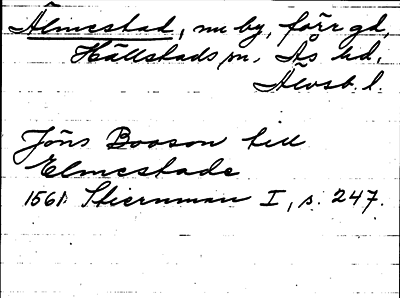 Älmestad, nu by, förr gd,
Hällstads sn, Ås hd,
Älvsb. l.
Jöns Booson till
Elmestade
1561. Stiernman I, s. 247.